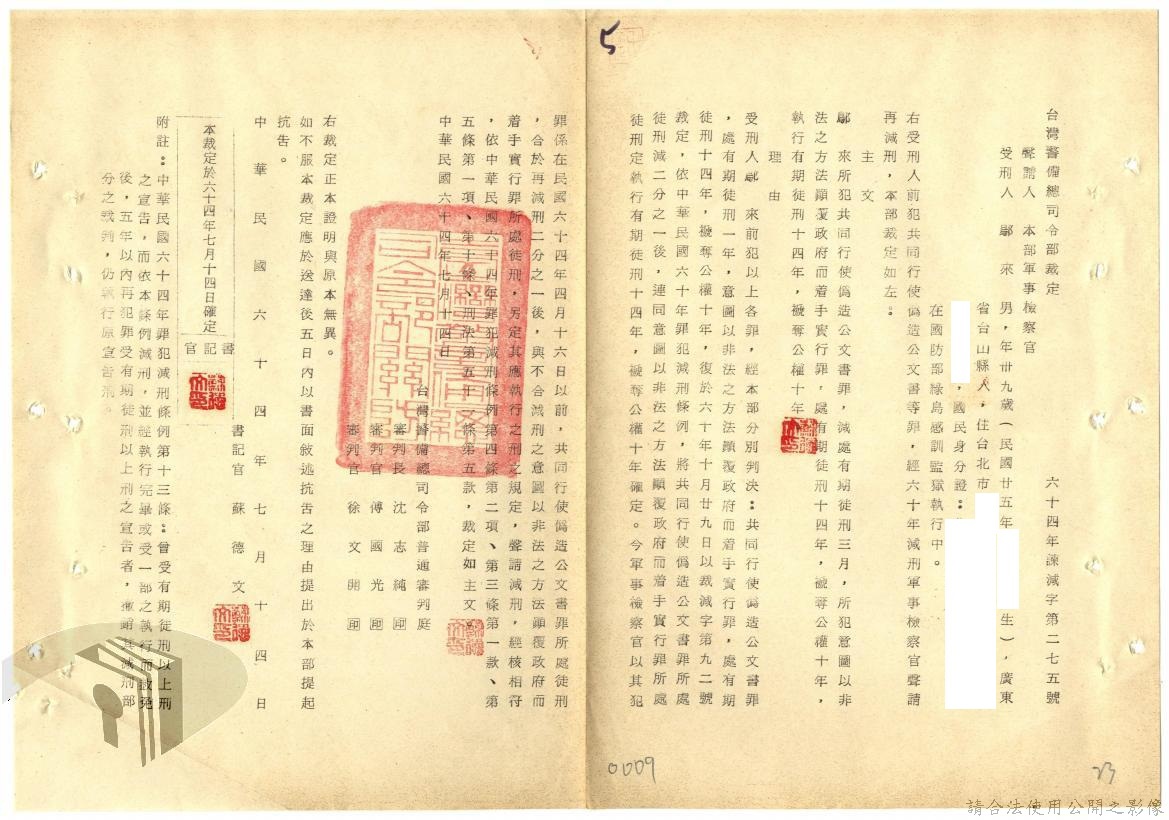 5
台灣警備總司令部裁定　六十四年諫減字第二七五號
聲請人　本部軍事檢察官
受刑人　鄔　來　男，年卅九歲（民國廿五年　　生），廣東
省台山縣人，住台北市
，國民身分證：
在國防部綠島感訓監獄執行中。
右受刑人前犯共同行使偽造公文書等罪，經六十年減刑軍事檢察官聲請
再減刑，本部裁定如左。
主　文
鄔　來所犯共同行使偽造公文書罪，減處有期徒刑三月，所犯意圖以非
法之方法顛覆政府而着手實行罪，處有期徒刑十四年，褫奪公權十年，
執行有期徒刑十四年，褫奪公權十年。
理　由
受刑人鄔　來前犯以上各罪，經本部分別判決：共同行使偽造公文書罪
，處有期徒刑一年，意圖以非法之方法顛覆政府而着手實行罪，處有期
徒刑十四年，褫奪公權十年，復於六十年十月廿九日以裁減字第九二號
裁定，依中華民國六十年罪犯減刑條例，將共同行使偽造公文書罪所處
徒刑減二分之一後，連同意圖以非法之方法顛覆政府而着手實行罪所處
徒刑定執行有期徒刑十四年，褫奪公權十年確定。今軍事檢察官以其犯
0009
23
罪係在民國六十四年四月十六日以前，共同行使偽造公文書罪所處徒刑
，合於再減刑二分之一後，與不合減刑之意圖以非法之方法顛覆政府而
着手實行罪所處徒刑，另定其應執行之刑之規定，聲請減刑，經核相符
，依中華民國六十四年罪犯減刑條例第四條第二項、第三條第一款、第
五條第一項、第十條、刑法第五十一條第五款，裁定如主文。
中華民國六十四年七月十四日
台灣警備總司令部普通審判庭
審判長　沈　志　純　印
審判官　傅　國　光　印
審判官　徐　文　開　印
右裁定正本證明與原本無異。
如不服本裁定應於送達後五日內以書面敘述抗告之理由提出於本部提起
抗告。
中華民國六十四年七月十四日
書記官　蘇　德　文
本裁定於六十四年七月十四日確定
書記官
附註：中華民國六十四年罪犯減刑條例第十三條：曾受有期徒刑以上刑
之宣告，而依本條例減刑，並經執行完畢或受一部之執行而赦免
後，五年以內再犯罪受有期徒刑以上刑之宣告者，撤銷其減刑部
分之裁判，仍執行原宣告刑。
請合法使用公開之影像